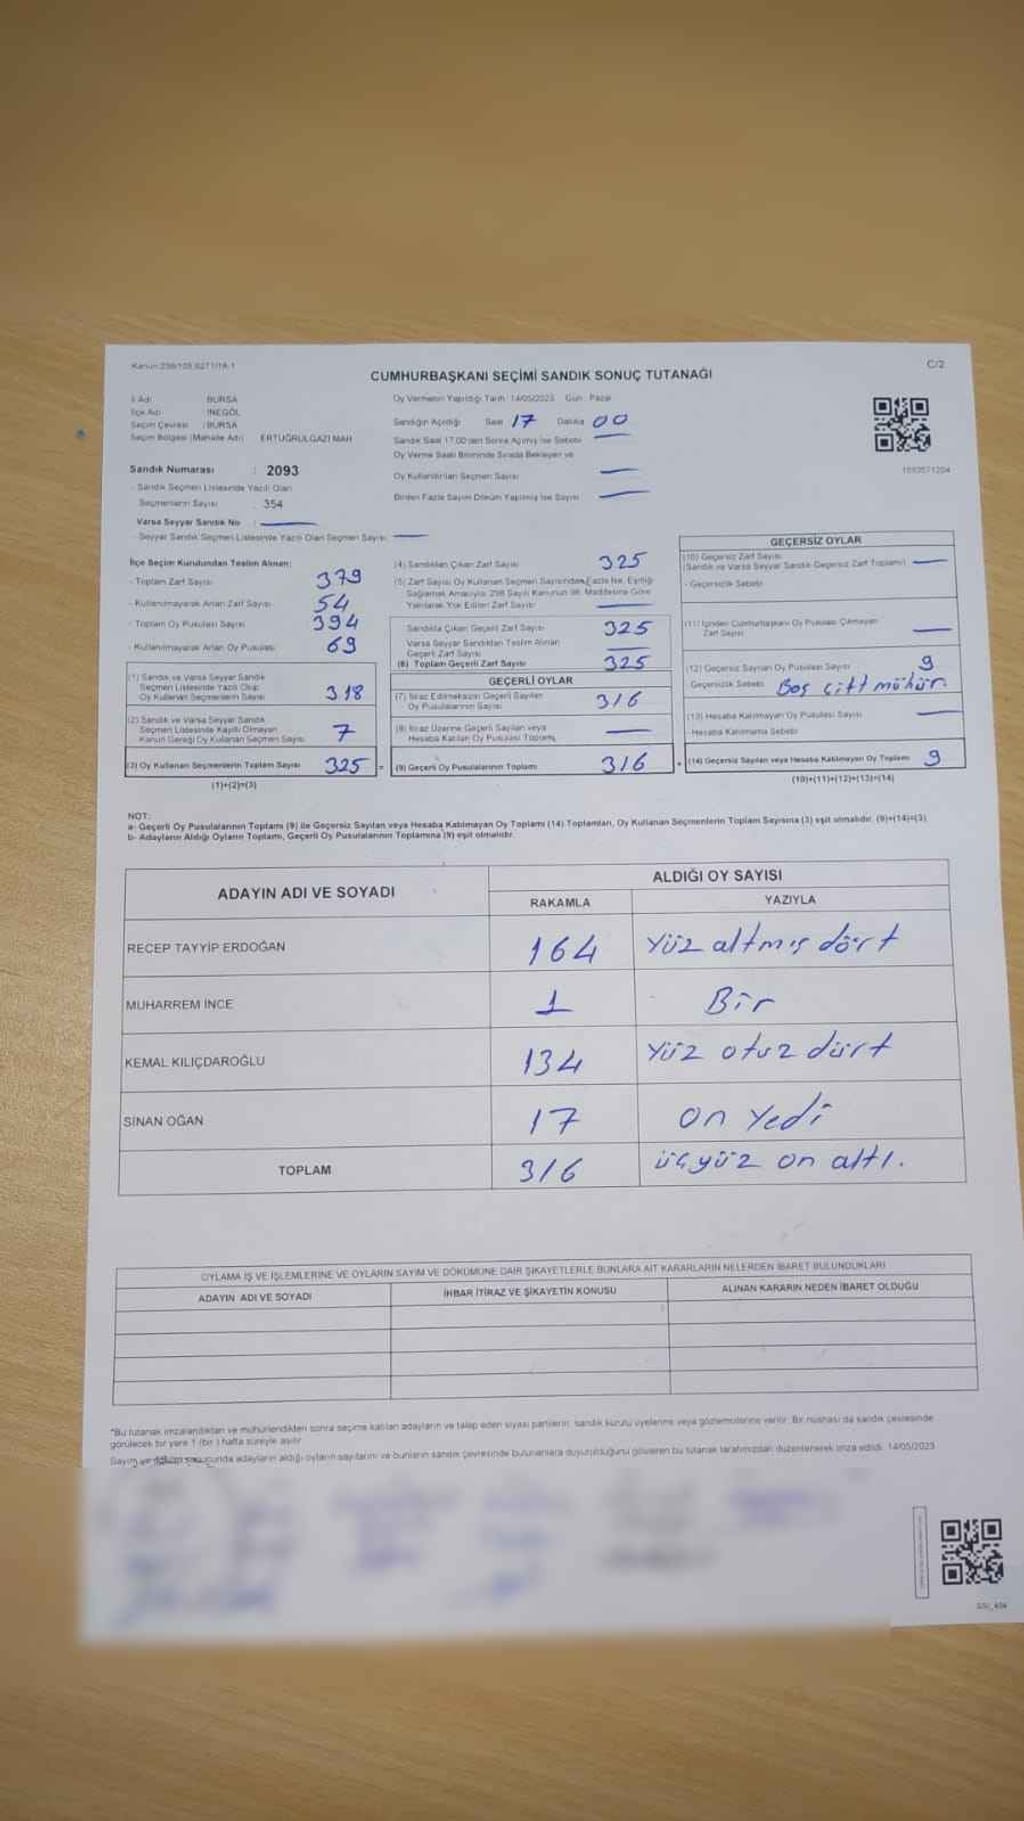 C/2
CUMHURBAŞKANI SEÇİMİ SANDIK SONUÇ TUTANAĞI
İl Adı : BURSA
İlçe Adı : İNEGÖL
Seçim Çevresi : BURSA
Seçim Bölgesi (Mahalle Adı) ERTUĞRULGAZİ MAH
Sandık Numarası : 2093
- Sandık Seçmen Listesinde Yazılı Olan
Seçmenlerin Sayısı : 354
Varsa Seyyar Sandık No :
- Seyyar Sandık Seçmen Listesinde Yazılı Olan Seçmen Sayısı
Oy Vermenin Yapıldığı Tarih : 14/05/2023 Gün : Pazar
Sandığın Açıldığı Saat 17 Dakika 00
Sandık Saat 17.00'den Sonra Açılmış İse Sebebi
Oy Verme Saati Bitiminde Sırada Bekleyen ve
Oy Kullandırılan Seçmen Sayısı
Birden Fazla Sayım Döküm Yapılmış İse Sayısı
İlçe Seçim Kurulundan Teslim Alınan:
- Toplam Zarf Sayısı 379
- Kullanılmayarak Artan Zarf Sayısı 54
- Toplam Oy Pusulası Sayısı 394
- Kullanılmayarak Artan Oy Pusulası 69
(1) Sandık ve Varsa Seyyar Sandık
Seçmen Listesinde Yazılı Olup
Oy Kullanan Seçmenlerin Sayısı 318
(2) Sandık ve Varsa Seyyar Sandık
Seçmen Listesinde Kayıtlı Olmayan
Kanun Gereği Oy Kullanan Seçmen Sayısı 7
(3) Oy Kullanan Seçmenlerin Toplam Sayısı 325 =
(1)+(2)=(3)
(4) Sandıktan Çıkan Zarf Sayısı 325
(5) Zarf Sayısı Oy Kullanan Seçmen Sayısından Fazla İse, Eşitliği
Sağlamak Amacıyla 298 Sayılı Kanunun 98. Maddesine Göre
Yakılarak Yok Edilen Zarf Sayısı
Sandıkta Çıkan Geçerli Zarf Sayısı 325
Varsa Seyyar Sandıktan Teslim Alınan
Geçerli Zarf Sayısı
(6) Toplam Geçerli Zarf Sayısı 325
GEÇERLİ OYLAR
(7) İtiraz Edilmeksizin Geçerli Sayılan
Oy Pusulalarının Sayısı 316
(8) İtiraz Üzerine Geçerli Sayılan veya
Hesaba Katılan Oy Pusulası Toplamı
(9) Geçerli Oy Pusulalarının Toplamı 316 +
GEÇERSİZ OYLAR
(10) Geçersiz Zarf Sayısı
(Sandık ve Varsa Seyyar Sandık Geçersiz Zarf Toplamı)
- Geçersizlik Sebebi
(11) İçinden Cumhurbaşkanı Oy Pusulası Çıkmayan
Zarf Sayısı
(12) Geçersiz Sayılan Oy Pusulası Sayısı 9
Geçersizlik Sebebi Boş çift mühür.
(13) Hesaba Katılmayan Oy Pusulası Sayısı
- Hesaba Katılmama Sebebi
(14) Geçersiz Sayılan veya Hesaba Katılmayan Oy Toplamı 9
(10)+(11)+(12)+(13)=(14)
NOT:
a- Geçerli Oy Pusulalarının Toplamı (9) ile Geçersiz Sayılan veya Hesaba Katılmayan Oy Toplamı (14) Toplamları, Oy Kullanan Seçmenlerin Toplam Sayısına (3) eşit olmalıdır. (9)+(14)=(3)
b- Adayların Aldığı Oyların Toplamı, Geçerli Oy Pusulalarının Toplamına (9) eşit olmalıdır.
ADAYIN ADI VE SOYADI ALDIĞI OY SAYISI
RAKAMLA YAZIYLA
RECEP TAYYİP ERDOĞAN 164 Yüz altmış dört
MUHARREM İNCE 1 Bir
KEMAL KILIÇDAROĞLU 134 Yüz otuz dört
SİNAN OĞAN 17 on Yedi
TOPLAM 316 üçyüz on altı.
OYLAMA İŞ VE İŞLEMLERİNE VE OYLARIN SAYIM VE DÖKÜMÜNE DAİR ŞİKAYETLERLE BUNLARA AİT KARARLARIN NELERDEN İBARET BULUNDUKLARI
ADAYIN ADI VE SOYADI İHBAR İTİRAZ VE ŞİKAYETİN KONUSU ALINAN KARARIN NEDEN İBARET OLDUĞU
*Bu tutanak imzalandıktan ve mühürlendikten sonra seçime katılan adayların ve talep eden siyasi partilerin, sandık kurulu üyelerine veya gözlemcilerine verilir. Bir nüshası da sandık çevresinde
görülecek bir yere 1 (bir) hafta süreyle asılır.
Sayım ve döküm sonucunda adayların aldığı oyların sayılarını ve bunların sandık çevresinde bulunanlara duyurulduğunu gösteren bu tutanak tarafımızdan düzenlenerek imza edildi. 14/05/2023